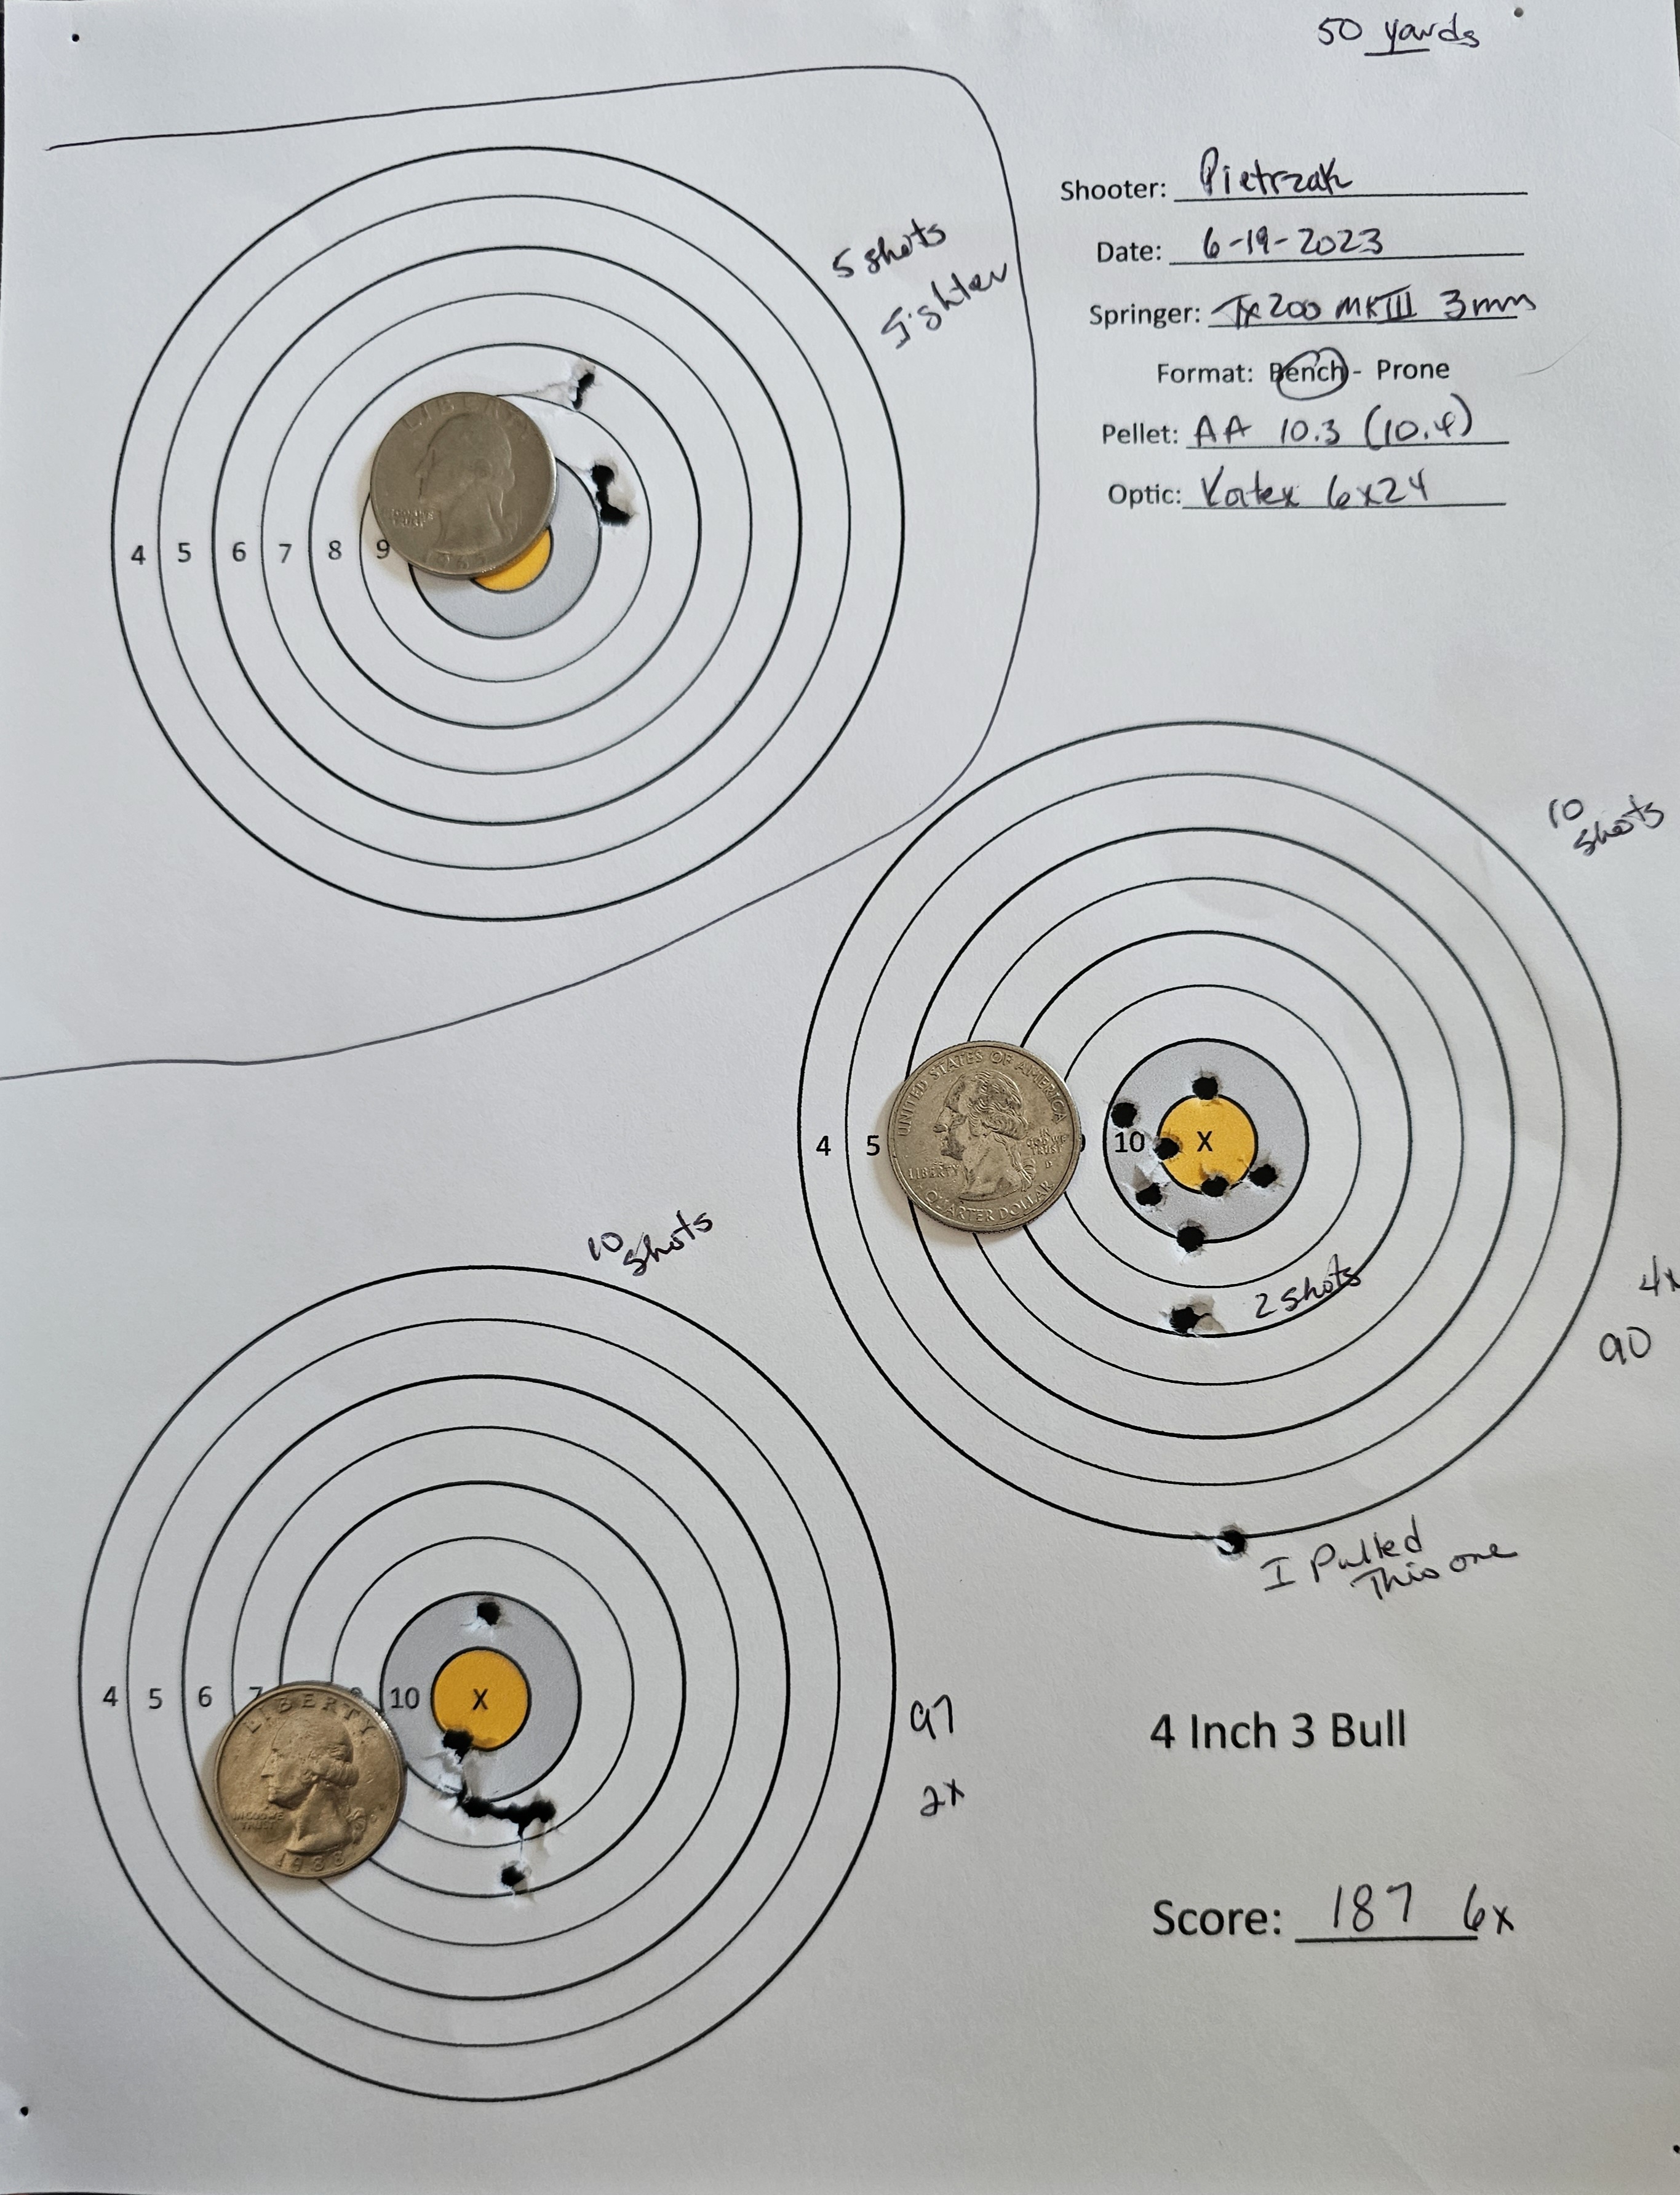 50 yards
Shooter: Pietrzak
Date: 6-19-2023
Springer: Tx200 MKIII 3mm
Format: Bench - Prone
Pellet: AA 10.3 (10.4)
Optic: Vortex 6x24
5 shots
LIBERTY
4 5 6 7 8 9
10
shots
UNITED STATES OF AMERICA
IN GOD WE TRUST
LIBERTY
D
QUARTER DOLLAR
4 5
10 X
2 shots
4x
90
I Pulled
This one
10
shots
4 5 6 7
10 X
LIBERTY
IN GOD WE
TRUST
1988
97
2x
4 Inch 3 Bull
Score: 187 6x